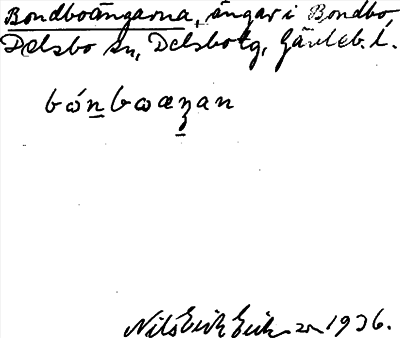 Bondboängarna, ängar i Bondbo,
Delsbo sn, Delsbo tg, Gävleb. l.
bónbwæzan
Nils Erik Eriksson 1936.